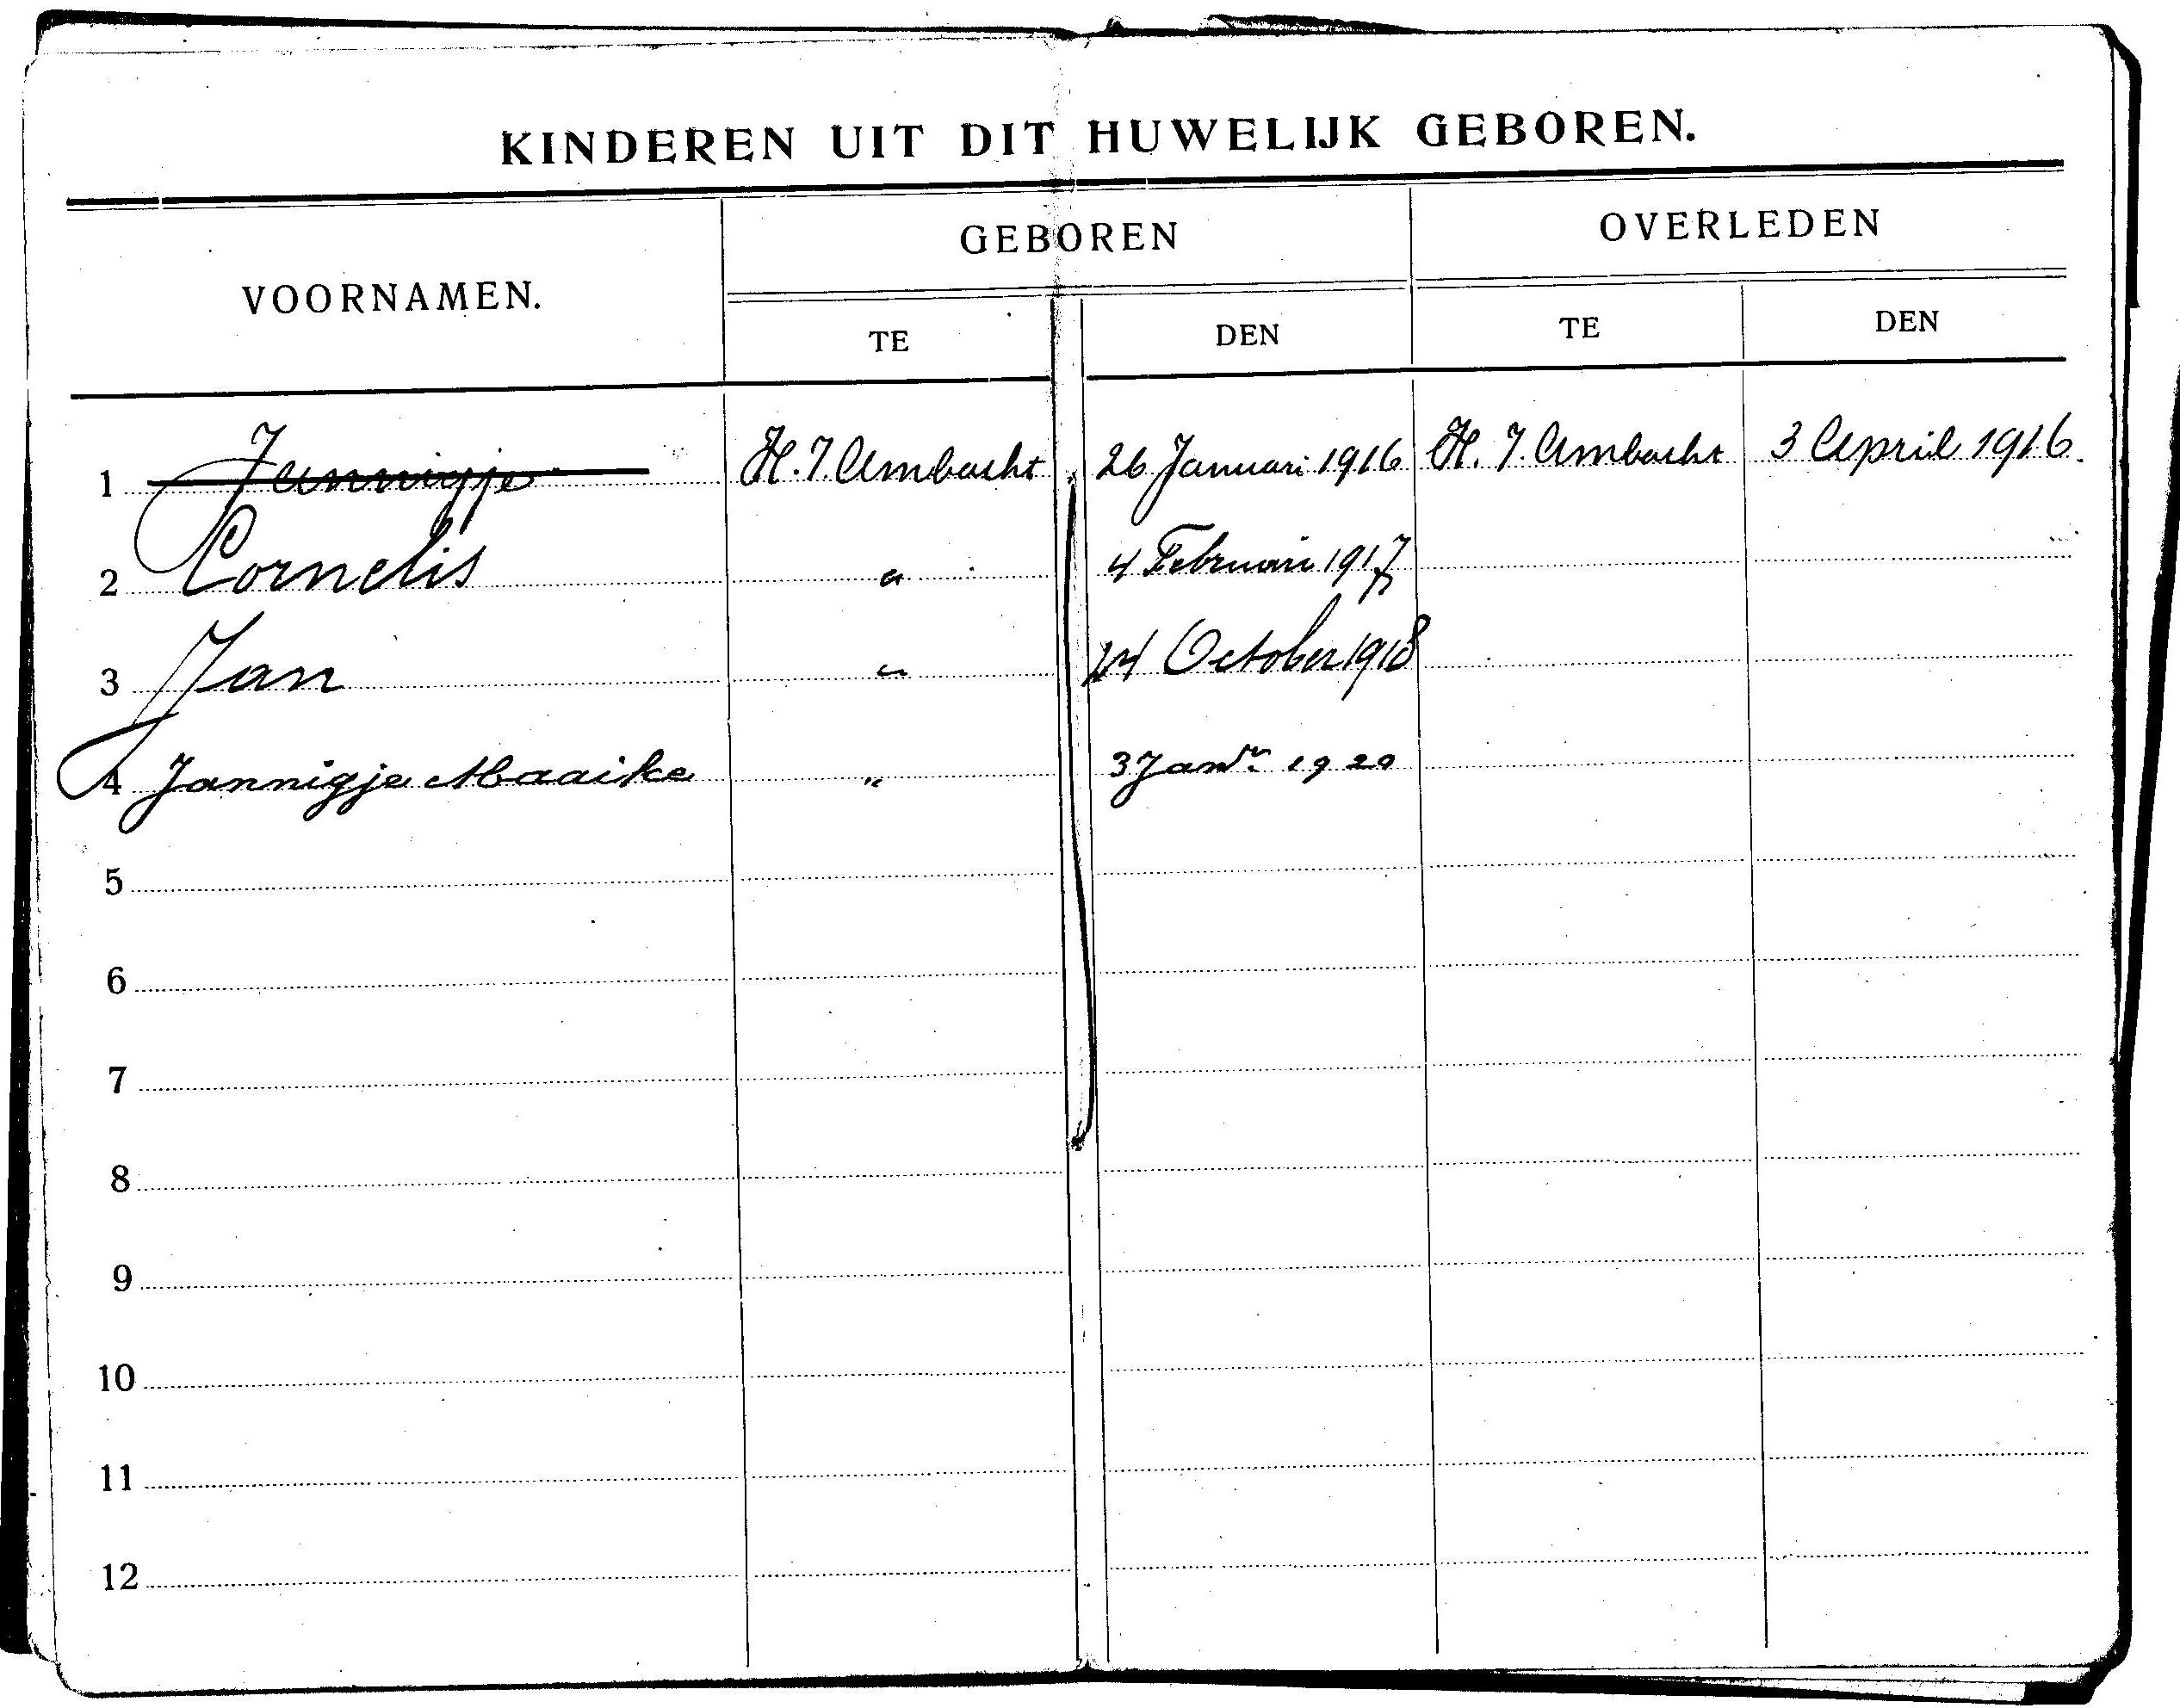 KINDEREN UIT DIT HUWELIJK GEBOREN.
VOORNAMEN.
GEBOREN
OVERLEDEN
TE DEN TE DEN
1 Jannigje H. I. Ambacht 26 Januari 1916 H. I. Ambacht 3 April 1916.
2 Cornelis " 4 Februari 1917
3 Jan " 24 October 1918
4 Jannigje Maaike " 3 Janr. 1920
5
6
7
8
9
10
11
12